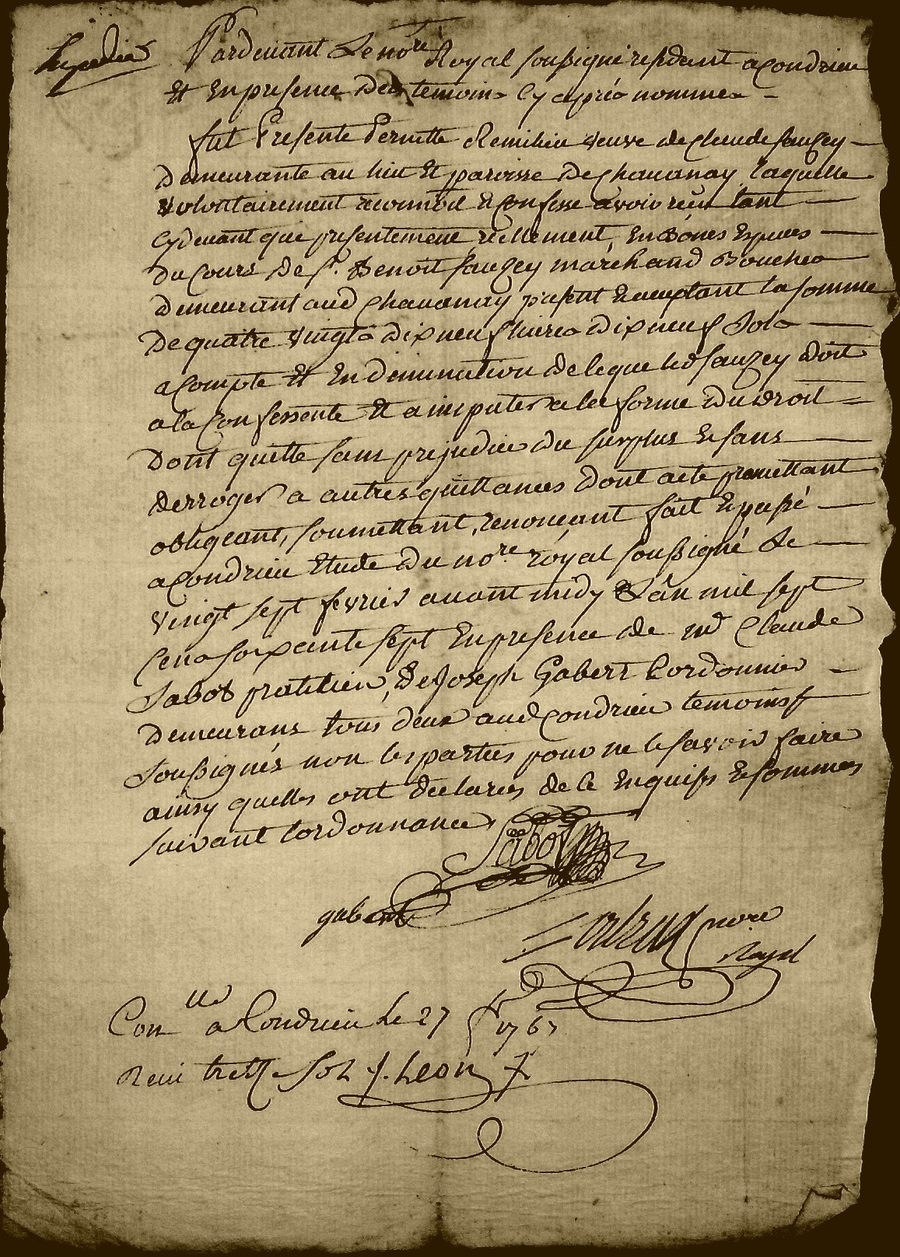 Expedié
Pardevant Le no.re Royal soussigné residant a Condrieu
Et En presence des temoins Cy aprés nommes
fut Presente Pernette Remilieu veuve de Claude sauzey
Demeurante au lieu Et paroisse de Chavanay laquelle
volontairement reconnoit & Confesse avoir reçu tant
Cydevant que presentement réellement, En Bonnes Especes
du Cours de S.r Benoit sauzey marchand Boucher
demeurant aud Chavanay present & acceptant la somme
De quatre vingts dix neuf livres dix neuf sols
a Compte Et En diminution de ce que led sauzey doit
a la Confessente Et a imputer a la forme du droit
Dont quitte sans prejudice du surplus & sans
derroger a autres quittances dont acte promettant
obligeant, soumettant, renonceant fait & passé
a Condrieu Etude du no.re royal soussigné le
vingt sept fevrier avant midy L'an mil sept
Cens soixante sept En presence de m.e Claude
Sabot pratitien, & de Joseph Gabert Cordonnier
Demeurans tous deux aud Condrieu temoins
soussignés non les parties pour ne le savoir faire
ainsy quelles ont declarés de ce Enquises & sommes
suivant l'ordonnance
Sabot
gabert
nore
Royal
Con.lle a Condrieu le 27 f 1767
Receu treize sols J. Leon